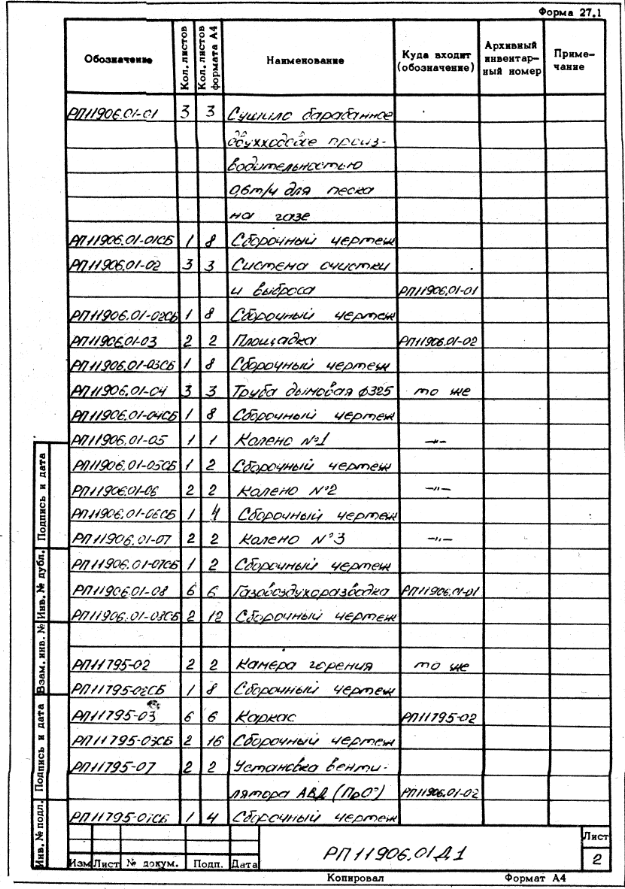 Форма 27.1
Обозначение Кол. листов Кол. листов формата А4 Наименование Куда входит (обозначение) Архивный инвентар-ный номер Приме-чание
РП11906.01-01 3 3 Сушило барабанное
двухходовое произ-
водительностью
0,6т/ч для песка
на газе
РП11906.01-01СБ 1 8 Сборочный чертеж
РП11906.01-02 3 3 Система очистки
и выброса РП11906.01-01
РП11906.01-02СБ 1 8 Сборочный чертеж
РП11906.01-03 2 2 Площадка РП11906.01-02
РП11906.01-03СБ 1 8 Сборочный чертеж
РП11906.01-04 3 3 Труба дымовая ф325 то же
РП11906.01-04СБ 1 8 Сборочный чертеж
РП11906.01-05 1 1 Колено №1 —"—
РП11906.01-05СБ 1 2 Сборочный чертеж
РП11906.01-06 2 2 Колено №2 —"—
РП11906.01-06СБ 1 4 Сборочный чертеж
РП11906.01-07 2 2 Колено №3 —"—
РП11906.01-07СБ 1 2 Сборочный чертеж
РП11906.01-08 6 6 Газовоздухоразводка РП11906.01-01
РП11906.01-08СБ 2 12 Сборочный чертеж
РП11795-02 2 2 Камера горения то же
РП11795-02СБ 1 8 Сборочный чертеж
РП11795-03 6 6 Каркас РП11795-02
РП11795-03СБ 2 16 Сборочный чертеж
РП11795-07 2 2 Установка венти-
лятора АВД (Пр0°) РП11906.01-02
РП11795-07СБ 1 4 Сборочный чертеж
Инв. № подл. Подпись и дата Взам. инв. № Инв. № дубл. Подпись и дата
Изм Лист № докум. Подп. Дата
РП11906.01Д1
Лист
2
Копировал Формат А4